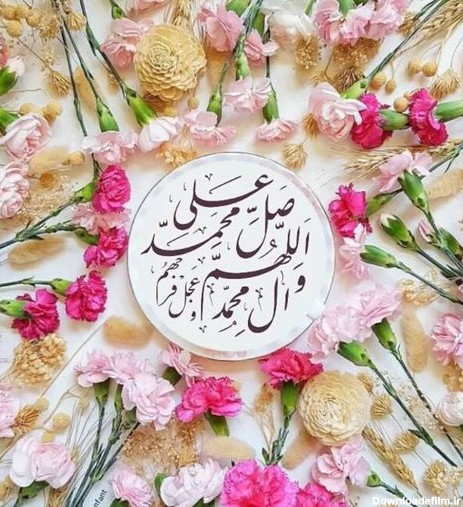 اللهمَّ صَلِّ علی محمدٍ
وَ الِ محمّد
وعجل فرجهم
Downloadefilm.ir